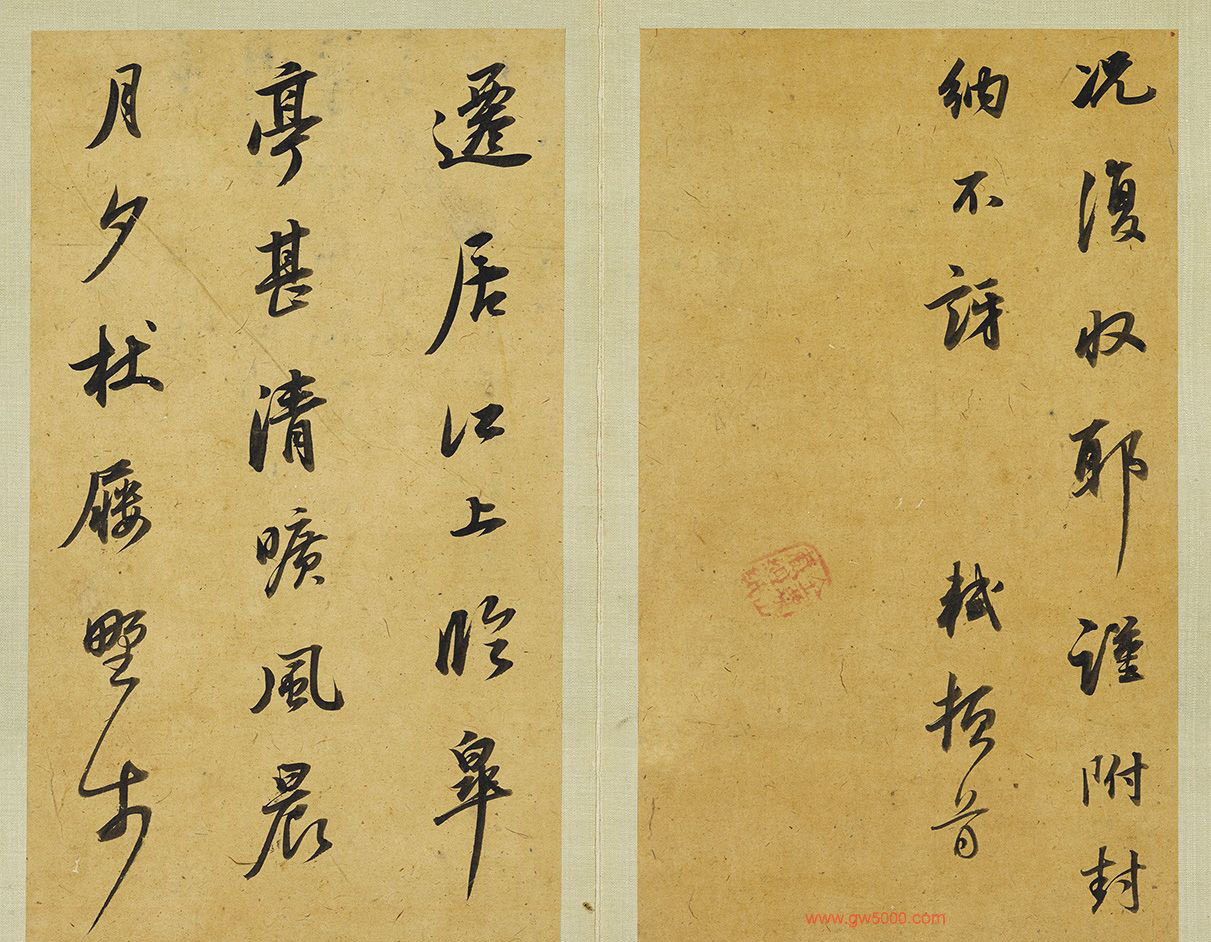 况復收耶謹附封
納不訝 軾頓首
遷居江上臨皋
亭甚清曠風晨
月夕杖屨野步
www.gw5000.com